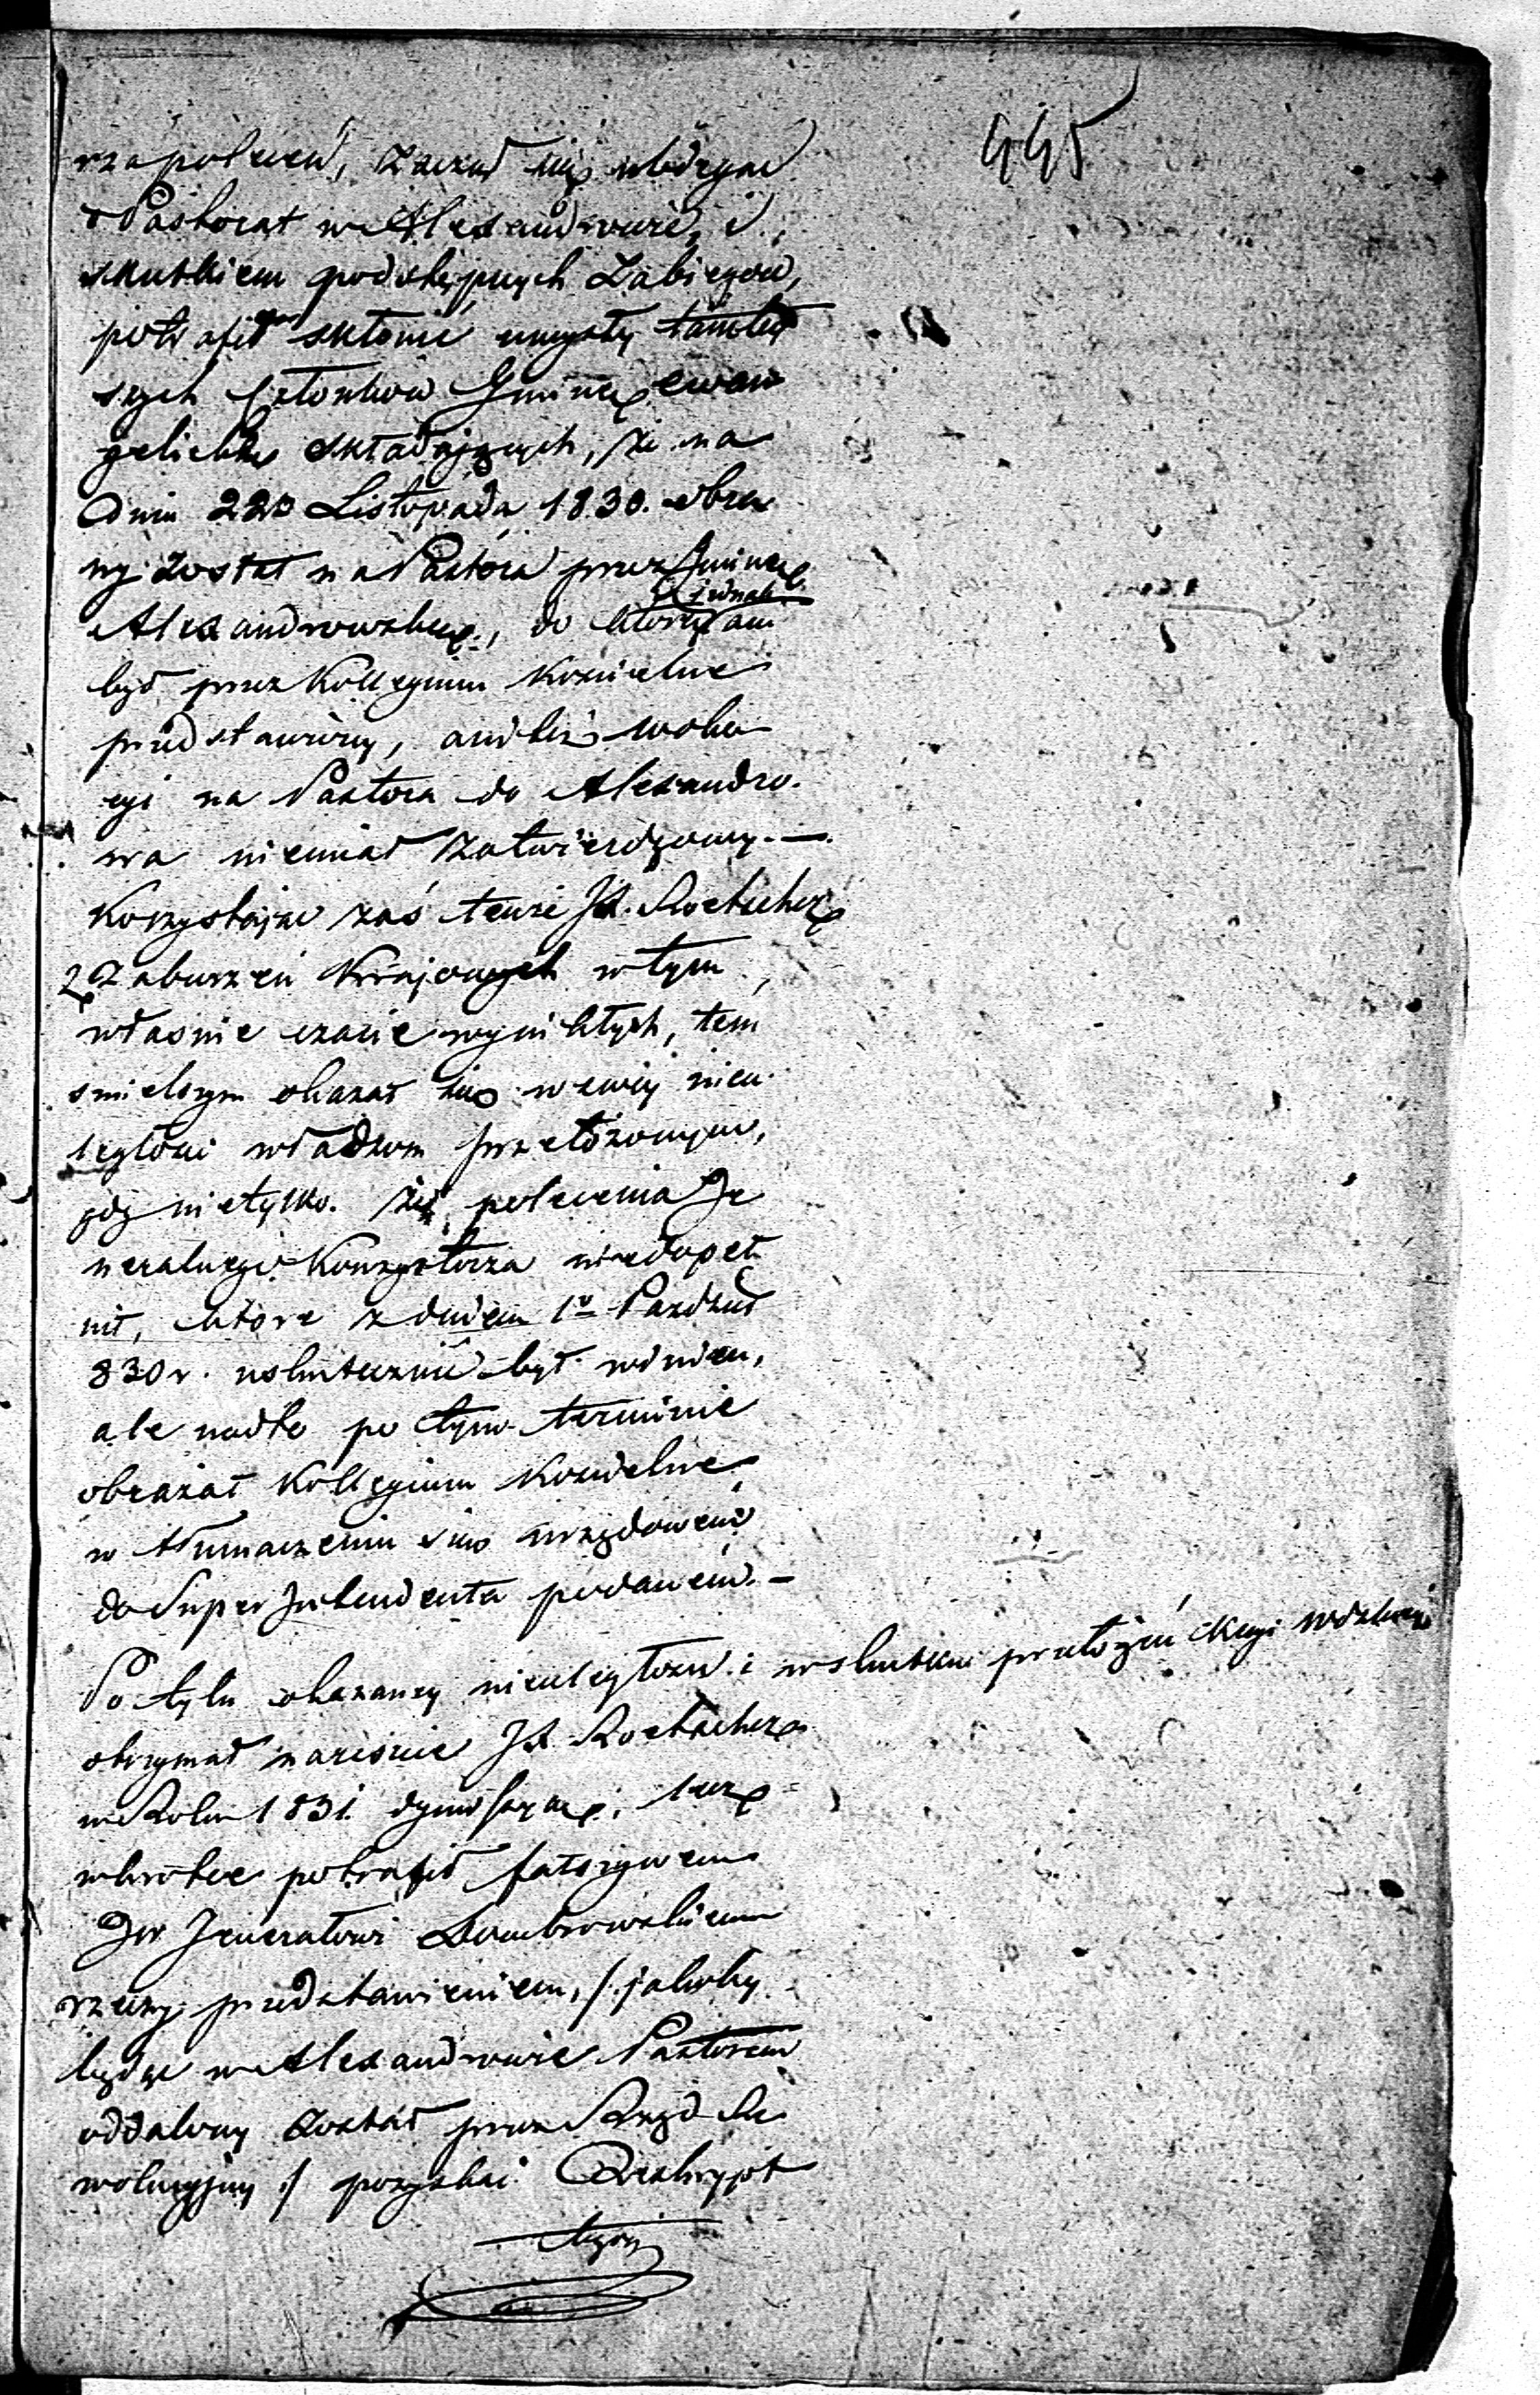 445
rza poleceń, zaczął się ubiegać
o Pastorat w Alexandrowie, i
skutkiem podstępnych zabiegów,
potrafił skłonić umysły tamtej
szych Członków Gminę ewan
gelicką składających, że na
dniu 22go Listopada 1830. obra
ny został na Pastora przez Gminę
Alexandrowską, do której ani
jednak
był przez Kollegium Kościelne
przedstawiony, ani też woka
cyi na Pastora do Alexandro-
wa niemiał zatwierdzonej.—
Korzystając zaś tenże JX. Roetscher
z zaburzeń Krajowych w tym
właśnie czasie wynikłych, tem
smielszym okazał się w swej nieu-
ległości władzom przełożonym,
gdy nietylko że polecenia Je
neralnego Konsystorza niedopeł
nił, które z dniem 1o Paździer
830 r. uskutecznić był winien,
ale nadto po tym terminie
obrażał Kollegium Kościelne
w tłumaczeniu się urzędowem
do Super Intendenta podanem.—
Po tylu okazanej nieuległości i w skutku przełożeń Kmsi Wdzkiej
otrzymał nareszcie JX. Roetscher
w Roku 1831. dymissyą, lecz
wkrótce potrafił fałszywem
JW Jenerałowi Dombrowskiemu
rzeczy przedstawieniem, /: jakoby
będąc w Alexandrowie Pastorem
oddalony został przez Rząd Re
wolucyjny :/ pozyskać Reskrypt
tegoż